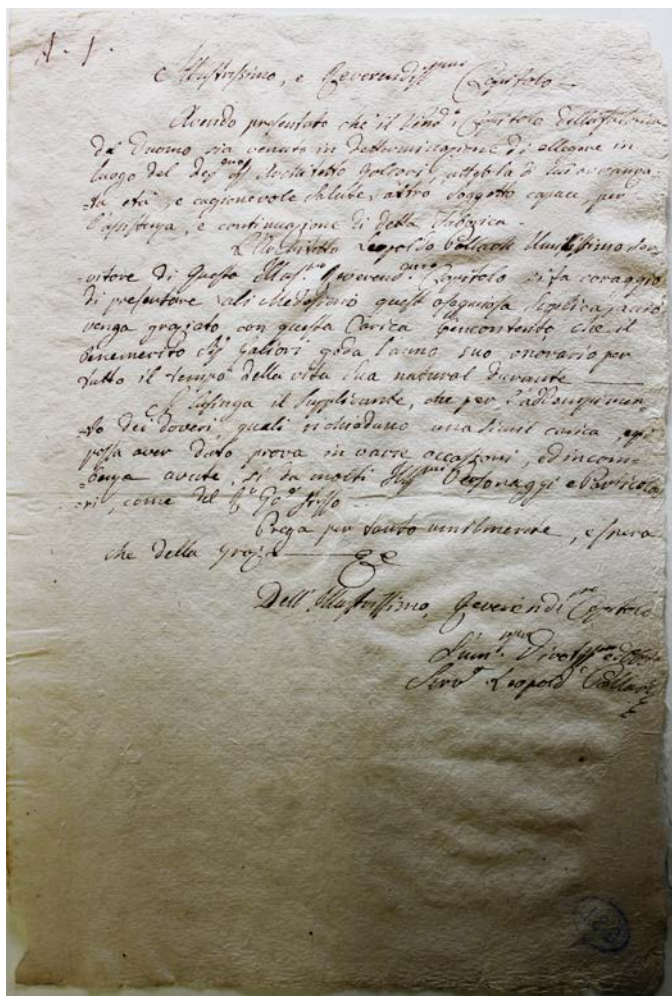 Illustrissimo, e Reverendiss.mo Capitolo
Avendo presentato che il Vend.o Capitolo della Fabrica
del Duomo sia venuto in determinazione di ellegere in
luogo del Sig.r Architetto Galiori, attesa la di lui avanza-
-ta età, e cagionevole salute, altro soggetto capace, per
l'assistenza, e continuazione di detta Fabrica.
L'Architetto Leopoldo Pollack Umilissimo Ser-
vitore di questo Illus.mo Reverend.mo Capitolo si fa coraggio
di presentare ali Medesimo quest'osequiosa suplica, acciò
venga graziato con questa Carica, che il
benemerito Galiori goda l'anno suo onorario per
tutto il tempo della vita sua natural durante
Si lusinga il supplicante, che per l'addempimen-
-to dei doveri, quali richiedono una simil carica,
possa aver dato prova in varie occassioni, ed incom-
-benze avute, si da molti Personaggi e Particola-
-ri, come del stesso
Prega per tanto umilmente, e spera
che della grazia
Dell' Illustrissimo, Reverendi.mo Capitolo
Um.mo Divotiss.mo
Serv.e Leopold Pollack